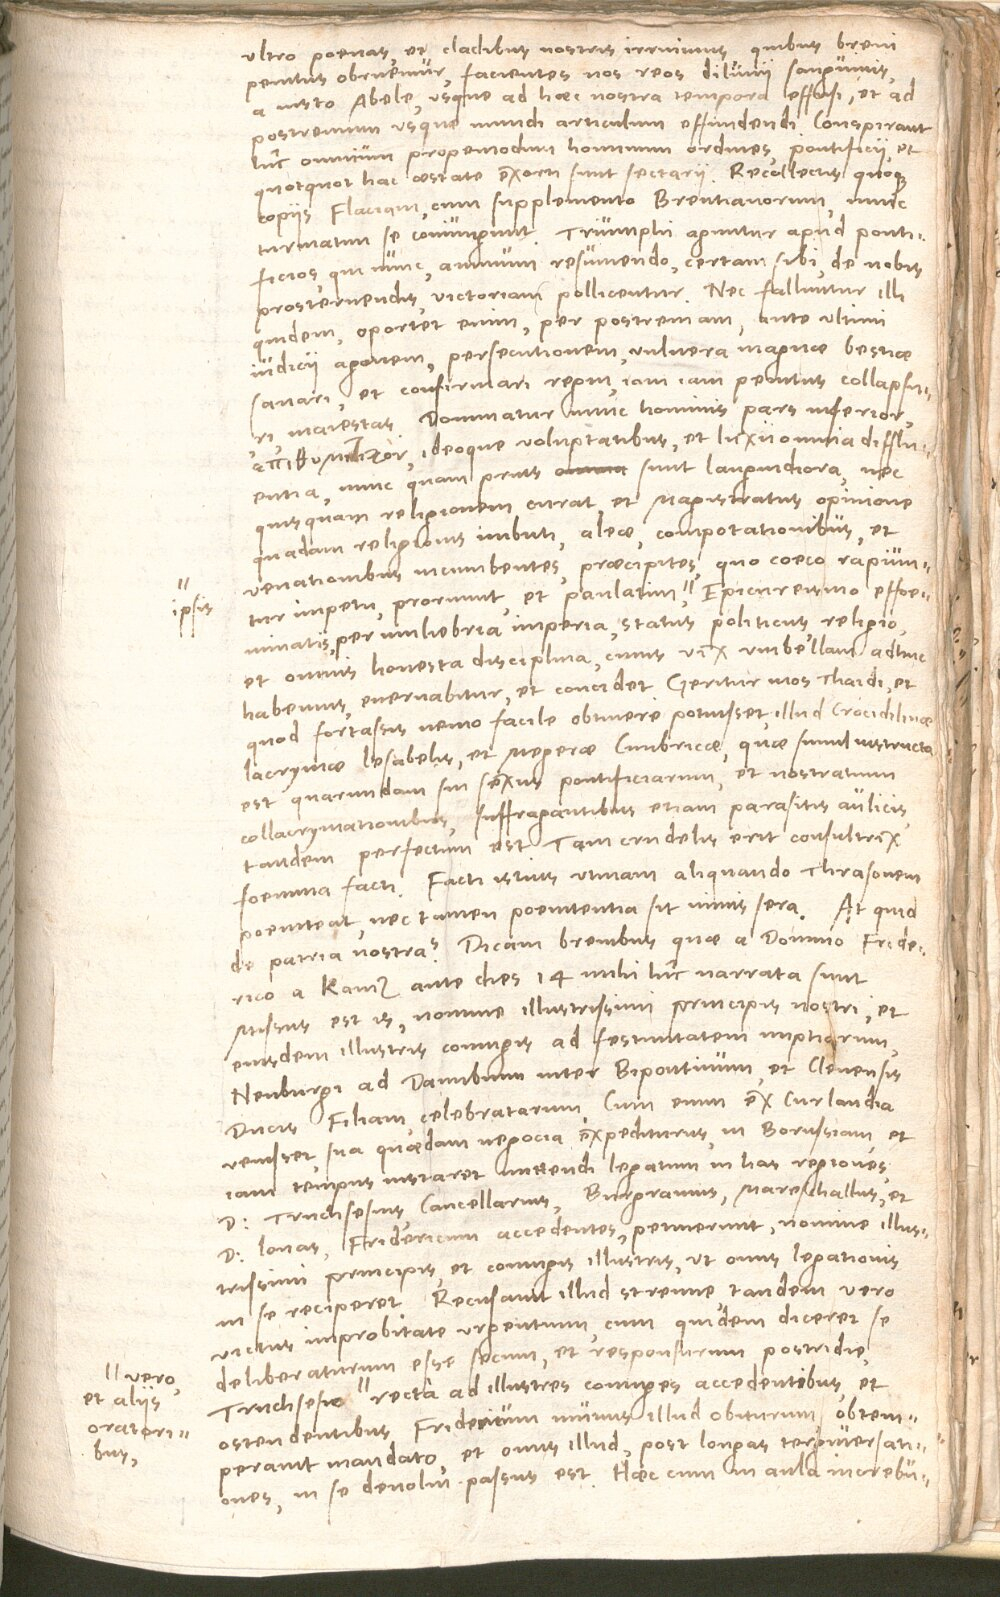 ultro poenas, et cladibus nostris irruimus, quibus brevi
penitus obruemur, facientes nos reos diluvii sanguinis,
a iusto Abele, usque ad haec nostra tempora effusi, et ad
postremum usque mundi articulum effundendi. Conspirant
huc omnium propemodum hominum ordines, pontificii, et
quotquot hac aestate exorti sunt sectarij. Recollectis quoq
copijs Flaciani, cum supplemento Brentianorum, nunc
turmatim se coniungunt. Triumphi aguntur apud ponti-
ficios, qui nunc, animum resumendo, certam sibi, de nobis
prosternendis, victoriam pollicentur. Nec falluntur illi
quidem, oportet enim, per postremam, ante ultimi
iudicij agonem, persecutionem, vulnera magnae bestiae
sanari, et confirmari regni, iam iam penitus collapsu-
ri, maiestas. Dominatur nunc hominis pars inferior,
ideoque voluptatibus, et luxu omnia difflu-
entia, nunc quam prius sunt languidiora, nec
quisquam religionem curat, et Magistratus opinione
quadam religionis imbuti, aleae, compotationibus, et
venationibus incumbentes, praecipites, quo coeco rapiun-
tur impetu, proruunt, et paulatim," Epicureismo effoe-
" ipsis
minatis, per muliebria imperia, status politicus, religio,
et omnis honesta disciplina, cuius vix umbellam adhuc
habemus, enervabitur, et concidet. Geritur mos Thaidi, et
quod fortassis nemo facile obtinere potuisset, illud Crocidilinae
lacrymae Iesabelis, et Megerae Cimbricae, quae simul instructa
est quarundam sui sexus pontificiarum, et nostratium
collacrymationibus, suffragantibus etiam parasitis aulicis,
tandem perfectum est. Tam crudelis erit consultrix
foemina facti. Facti istius utinam aliquando Thrasonem
poeniteat, nec tamen poenitentia sit nimis sera. At quid
de patria nostra? Dicam brevibus quae a Domino Fride-
rico a Kaniz ante dies 14 mihi huc narrata sunt
Missus est is, nomine illustrissimi principis nostri, et
eiusdem illustris coniugis ad festivitatem nuptiarum,
Neuburgi ad Danubium inter Bipontinum, et Clevensis
Ducis Filiam, celebratarum. Cum enim ex Curlandia
venisset, sua quaedam negocia expediturus, in Borussiam, et
iam tempus instaret mittendi legatum in has regiones,
D: Truchsesius, Cancellarius, Burgravius, Mareschallus, et
D: Ionas, Fridericum accedentes, petiverunt, nomine illus-
trissimi principis, et coniugis illustris, ut onus legationis
in se reciperet. Recusavit illud strenue, tandem vero
victus improbitate urgentium, cum quidem diceret se
deliberaturum esse secum, et responsurum postridie,
Truchsesio " recta ad illustres coniuges accedentibus, et
" vero,
et aliis
oratori-
bus,
ostendentibus, Fridericum munus illud obiturum, obtem-
peravit mandato, et onus illud, post longas tergiversati-
ones, in se devolui passus est. Haec cum in aula increbu-